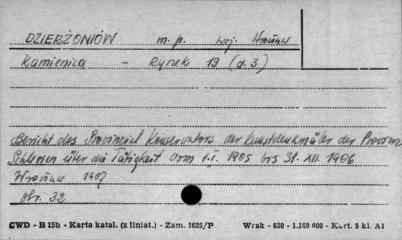 DZIERŻONIÓW m.p. woj. Wrocław
Kamienica - Rynek 19 (d.3)
Bericht des Provinzial Konservators der Kunstdenkmäler der Provinz
Schlesien über die Tätigkeit vom 1.I. 1905 bis 31. XII. 1906
Wrocław 1907
str. 32
CWD - B 15b - Karta katal. (z liniat.) - Zam. 1625/P Wrak - 830 - 1.169 000 - Kart. 5 kl. A1